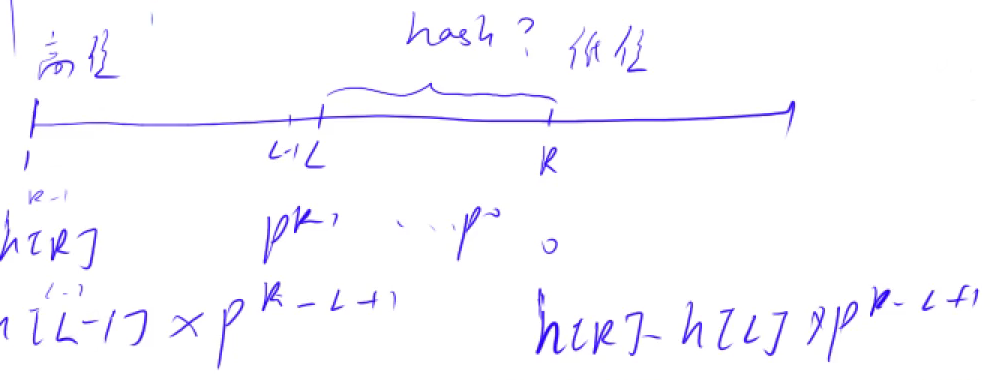 高位 hash? 低位
1 L-1 L R
R-1
h[R] p^{R-1} ... p^0 0
L-1
h[L-1] × p^{R-L+1} h[R]-h[L] × p^{R-L+1}